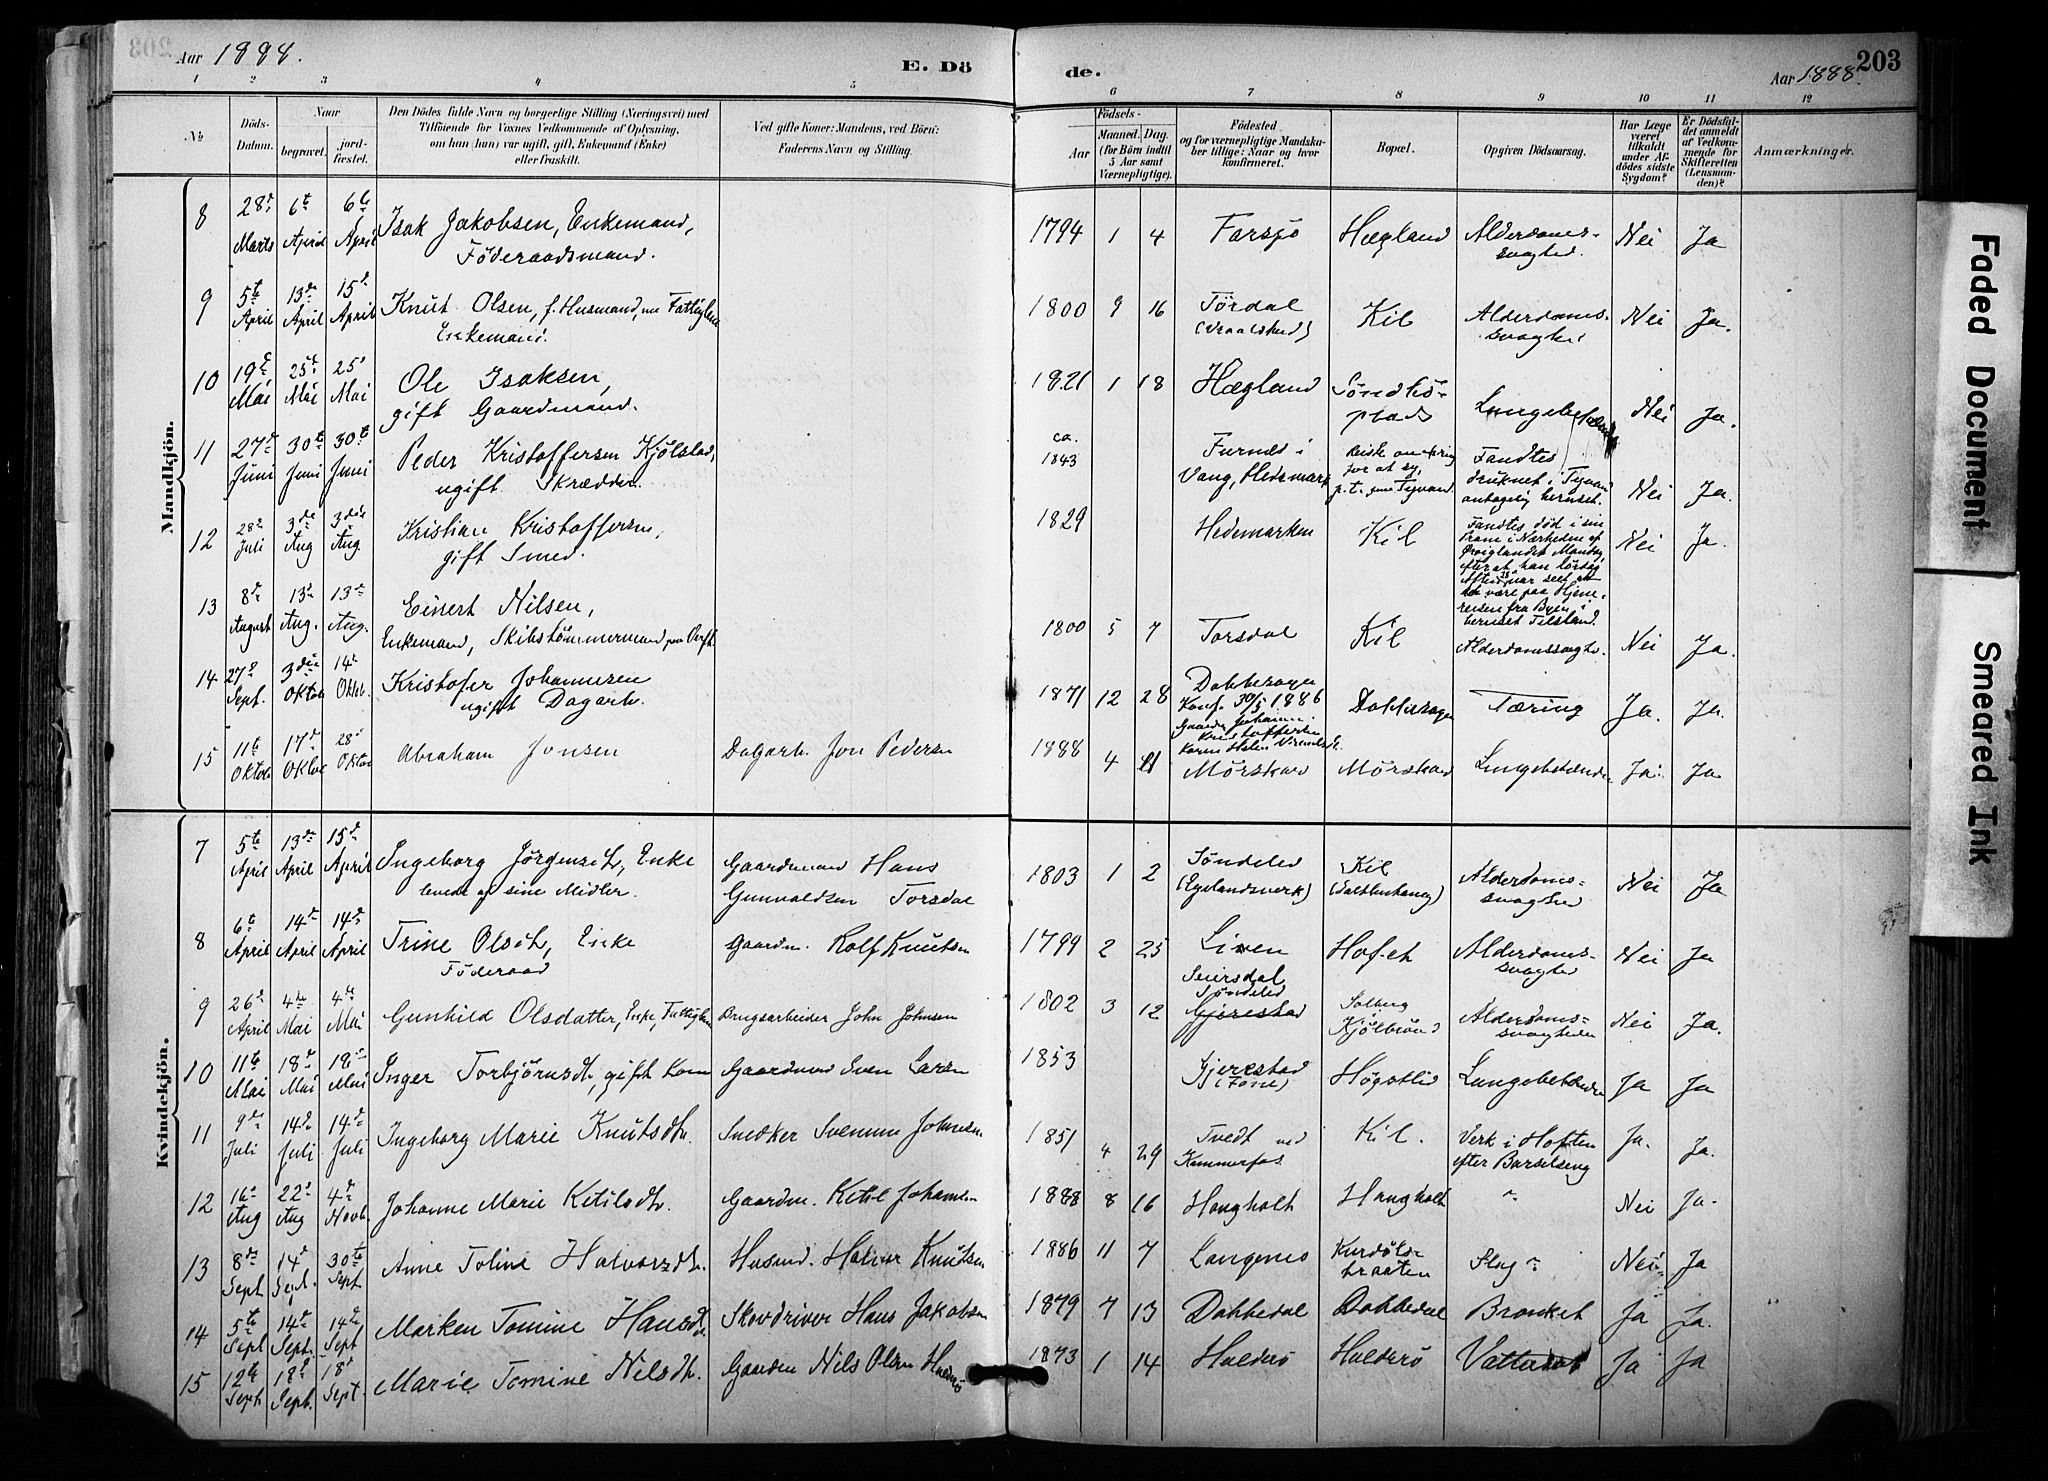 Aar 1888.
E. Dö
de.
Aar 1888.
203
1 2 3 4 5 6 7 8 9 10 11 12
No
Döds-
Datum.
Naar
begravet.
jord-
fæstet.
Den Dödes fulde Navn og borgerlige Stilling (Næringsvei) med
Tilföiende for Voxnes Vedkommende af Oplysning,
om han (hun) var ugift, gift, Enkemand (Enke)
eller fraskilt.
Ved gifte Koner: Mandens, ved Börn:
Faderens Navn og Stilling.
Födsels-
Aar
Maaned. Dag.
(for Börn indtil
5 Aar samt
Værnepligtige).
Födested
og for værnepligtige Mandska-
ber tillige: Naar og hvor
konfirmeret.
Bopæl.
Opgiven Dödsaarsag.
Har Læge
været
tilkaldt
under Af-
dödes sidste
Sygdom?
Er Dödsfal-
det anmeldt
af Vedkom-
mende for
Skifteretten
(Lensman-
den)?
Anmærkninger.
Mandkjön.
8 28de Marts 6te April 6te April Isak Jakobsen, Enkemand,
Föderaadsmand.
1794 1 4 Farsjö Hægland Alderdoms-
svaghed. Nei Ja
9 5te April 13de April 15de April Knut Olsen, f. Husmand, nu Fattiglem
Enkemand.
1800 9 16 Tørdal
(Vraalstad) Kil Alderdoms-
svaghed Nei Ja.
10 19de Mai 25de Mai 25 Mai Ole Isaksen,
gift Gaardmand.
1821 1 18 Hægland Söndbö-
plads Lungebetændelse Nei Ja.
11 27de Juni 30te Juni 30te Juni Peder Kristoffersen Kjölstad,
ugift Skrædder.
ca.
1843 Furnes i
Vang, Hedemark Reiste omkring
for at sy,
p.t. paa Tyvand. Fandtes
druknet i Tyvand
antagelig beruset. Nei Ja.
12 28de Juli 3die Aug 3die Aug. Kristian Kristoffersen,
gift Smed.
1829 Hedemarken Kil Fandtes död i sin
Pram i Nærheden af
Mandag,
efter at han Lördag
Aften var seet at
være paa Hjem-
reisen fra Byen i
beruset Tilstand. Nei Ja.
13 8de August 13de Aug. 13de Aug. Einert Nilsen,
Enkemand, Skibstömmermand
1800 5 7 Torsdal Kil Alderdomssvaghed. Nei Ja.
14 27de Sept. 3die Oktob 14de Oktob. Kristofer Johannesen
ugift Dagarb.
1871 12 28 Dobbesogen
Konf. 30/5 1886
Gaardm. Johannes
Kristoffersen
Dobbesogen Tæring Ja. Ja.
15 11te Oktob 17de Oktob 28de Oktob Abraham Jonsen Dagarb. Jon Pedersen
1888 4 11 Mörskar Mörskar Lungebetændelse Ja. Ja
Kvindekjön.
7 5te April 13de April 15de April Ingeborg Jörgensdt., Enke
levede af sine Midler. Gaardmand Hans
Gunvaldsen Torsdal
1803 1 2 Söndeled
(Egelandsverk) Kil
Alderdoms-
svaghed Nei Ja
8 6te April 14de April 14de April Trine Olsdt, Enke
Föderaad Gaardm. Rolf Knutsen
1799 2 25 Lien Hofet Alderdoms-
svaghed Nei Ja
9 26de April 4de Mai 4de Mai Gunhild Olsdatter, Enke, Fattiglem Brugsarbeider John Johnsen
1802 3 12 Seirsdal
Söndeled
Gjerestad Solberg
i
Kjölbrönd Alderdoms-
svagheden Nei Ja.
10 11te Mai 18de Mai 18de Mai Inger Torbjörnsdt., gift Kone Gaardmand Sven Larsen
1853 Gjerestad
Högstlid Lungebetændelse Ja Ja
11 9de Juli 14de Juli 14de Juli Ingeborg Marie Knutsdtr. Snedker Svenum Johnsen
1851 4 29 Tvedt ved
Kammerfos Kil. Verk i Hoften
efter Barselseng Ja. Ja.
12 16de Aug 22de Aug 4de Novb. Johanne Marie Ketilsdtr. Gaardm. Ketil Johansen
1888 8 16 Haugholt Haugholt Nei Ja.
13 8de Sept 14de Sept. 30te Sept Anne Toline Halvorsdtr. Husmd. Halvor Knutsen
1886 11 7 Langemo Kurdöls-
braaten Slag Nei Ja
14 5te Sept 14de Sept. 14de Sept Marken Tomine Hansdtr Skovdriver Hans Jakobsen
1879 7 13 Dobbedal Dobbedal Bronket Ja Ja.
15 12te Sept 18de Sept. 18de Sept. Marie Tomine Nilsdtr. Gaardm Nils Olsen Halderö
1873 1 14 Halderö Halderö Vattersot Ja Ja
Faded Document
Smeared Ink